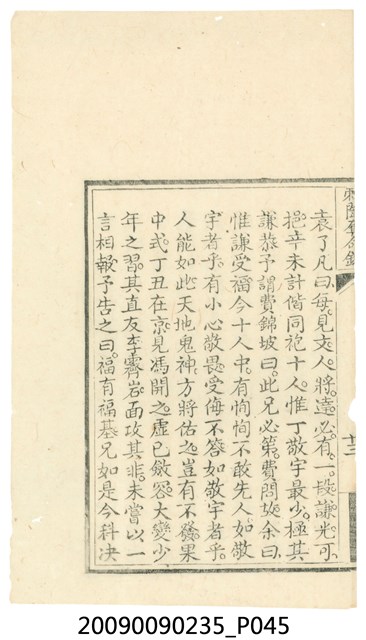 袁了凡曰每見文人將達必有一段謙光可
挹辛未計偕同袍十人惟丁敬宇最少極其
謙恭予謂費錦坡曰此兄必第費問故余曰
惟謙受福今十人中有恂恂不敢先人如敬
宇者乎有小心敬畏受侮不答如敬宇者乎
人能如此天地鬼神方將佑之豈有不發果
中式丁丑在京見馮開之虛已斂容大變少
年之習其直友李霽岩面攻其非未嘗以一
言相報予告之曰福有福基兄如是今科決
十三
20090090235_P045